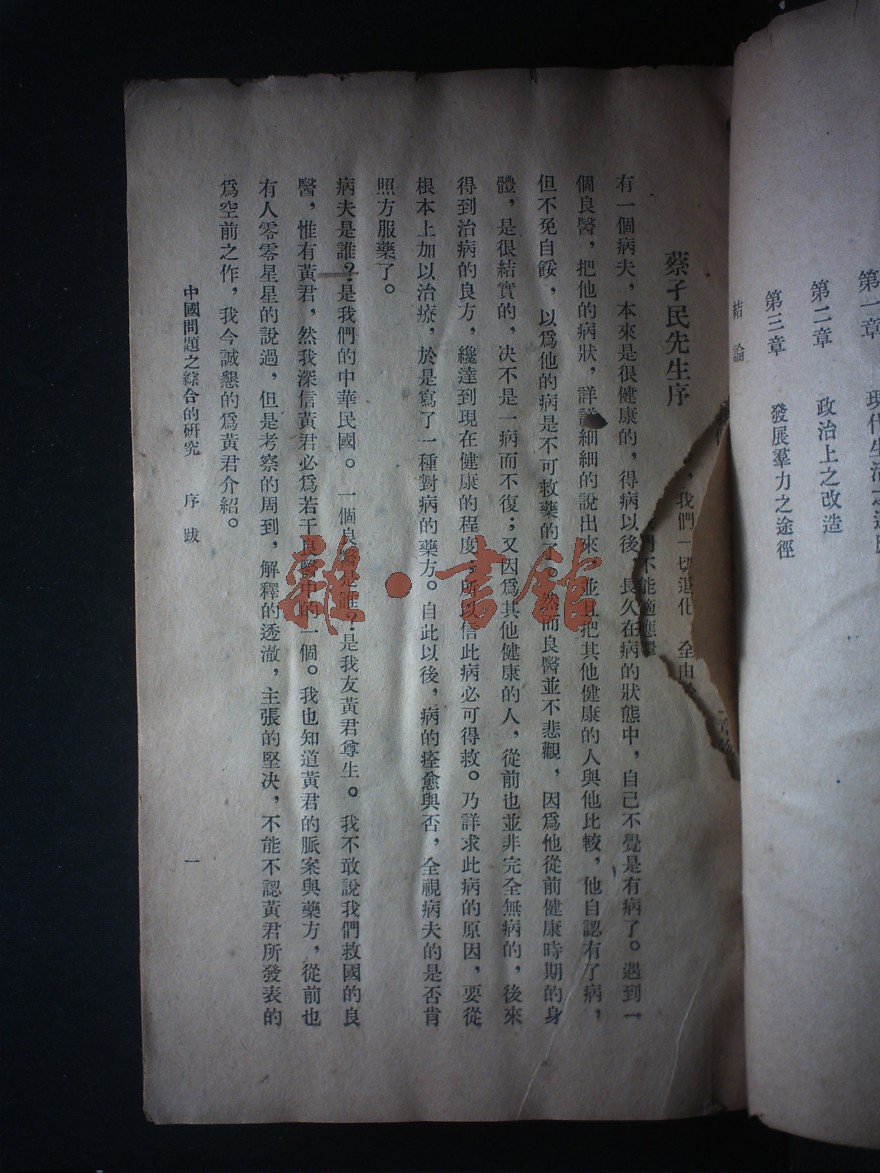 第一章
第二章　政治上之改造
第三章　發展羣力之途徑
結論
我們一切退化　全由
們不能適應
蔡孑民先生序
有一個病夫，本來是很健康的，得病以後，長久在病的狀態中，自己不覺是有病了。遇到一
個良醫，把他的病狀，詳詳細細的說出來，並且把其他健康的人與他比較，他自認有了病，
但不免自餒，以爲他的病是不可救藥的了。然而良醫並不悲觀，因爲他從前健康時期的身
體，是很結實的，决不是一病而不復；又因爲其他健康的人，從前也並非完全無病的，後來
得到治病的良方，纔達到現在健康的程度；所以信此病必可得救。乃詳求此病的原因，要從
根本上加以治療，於是寫了一種對病的藥方。自此以後，病的痊愈與否，全視病夫的是否肯
照方服藥了。
病夫是誰？是我們的中華民國。一個良醫是誰？是我友黃君尊生。我不敢說我們救國的良
醫，惟有黃君，然我深信黃君必爲若干良醫中的一個。我也知道黃君的脈案與藥方，從前也
有人零零星星的說過，但是考察的周到，解釋的透澈，主張的堅决，不能不認黃君所發表的
爲空前之作，我今誠懇的爲黃君介紹。
中國問題之綜合的研究　序跋　一
雜·書館